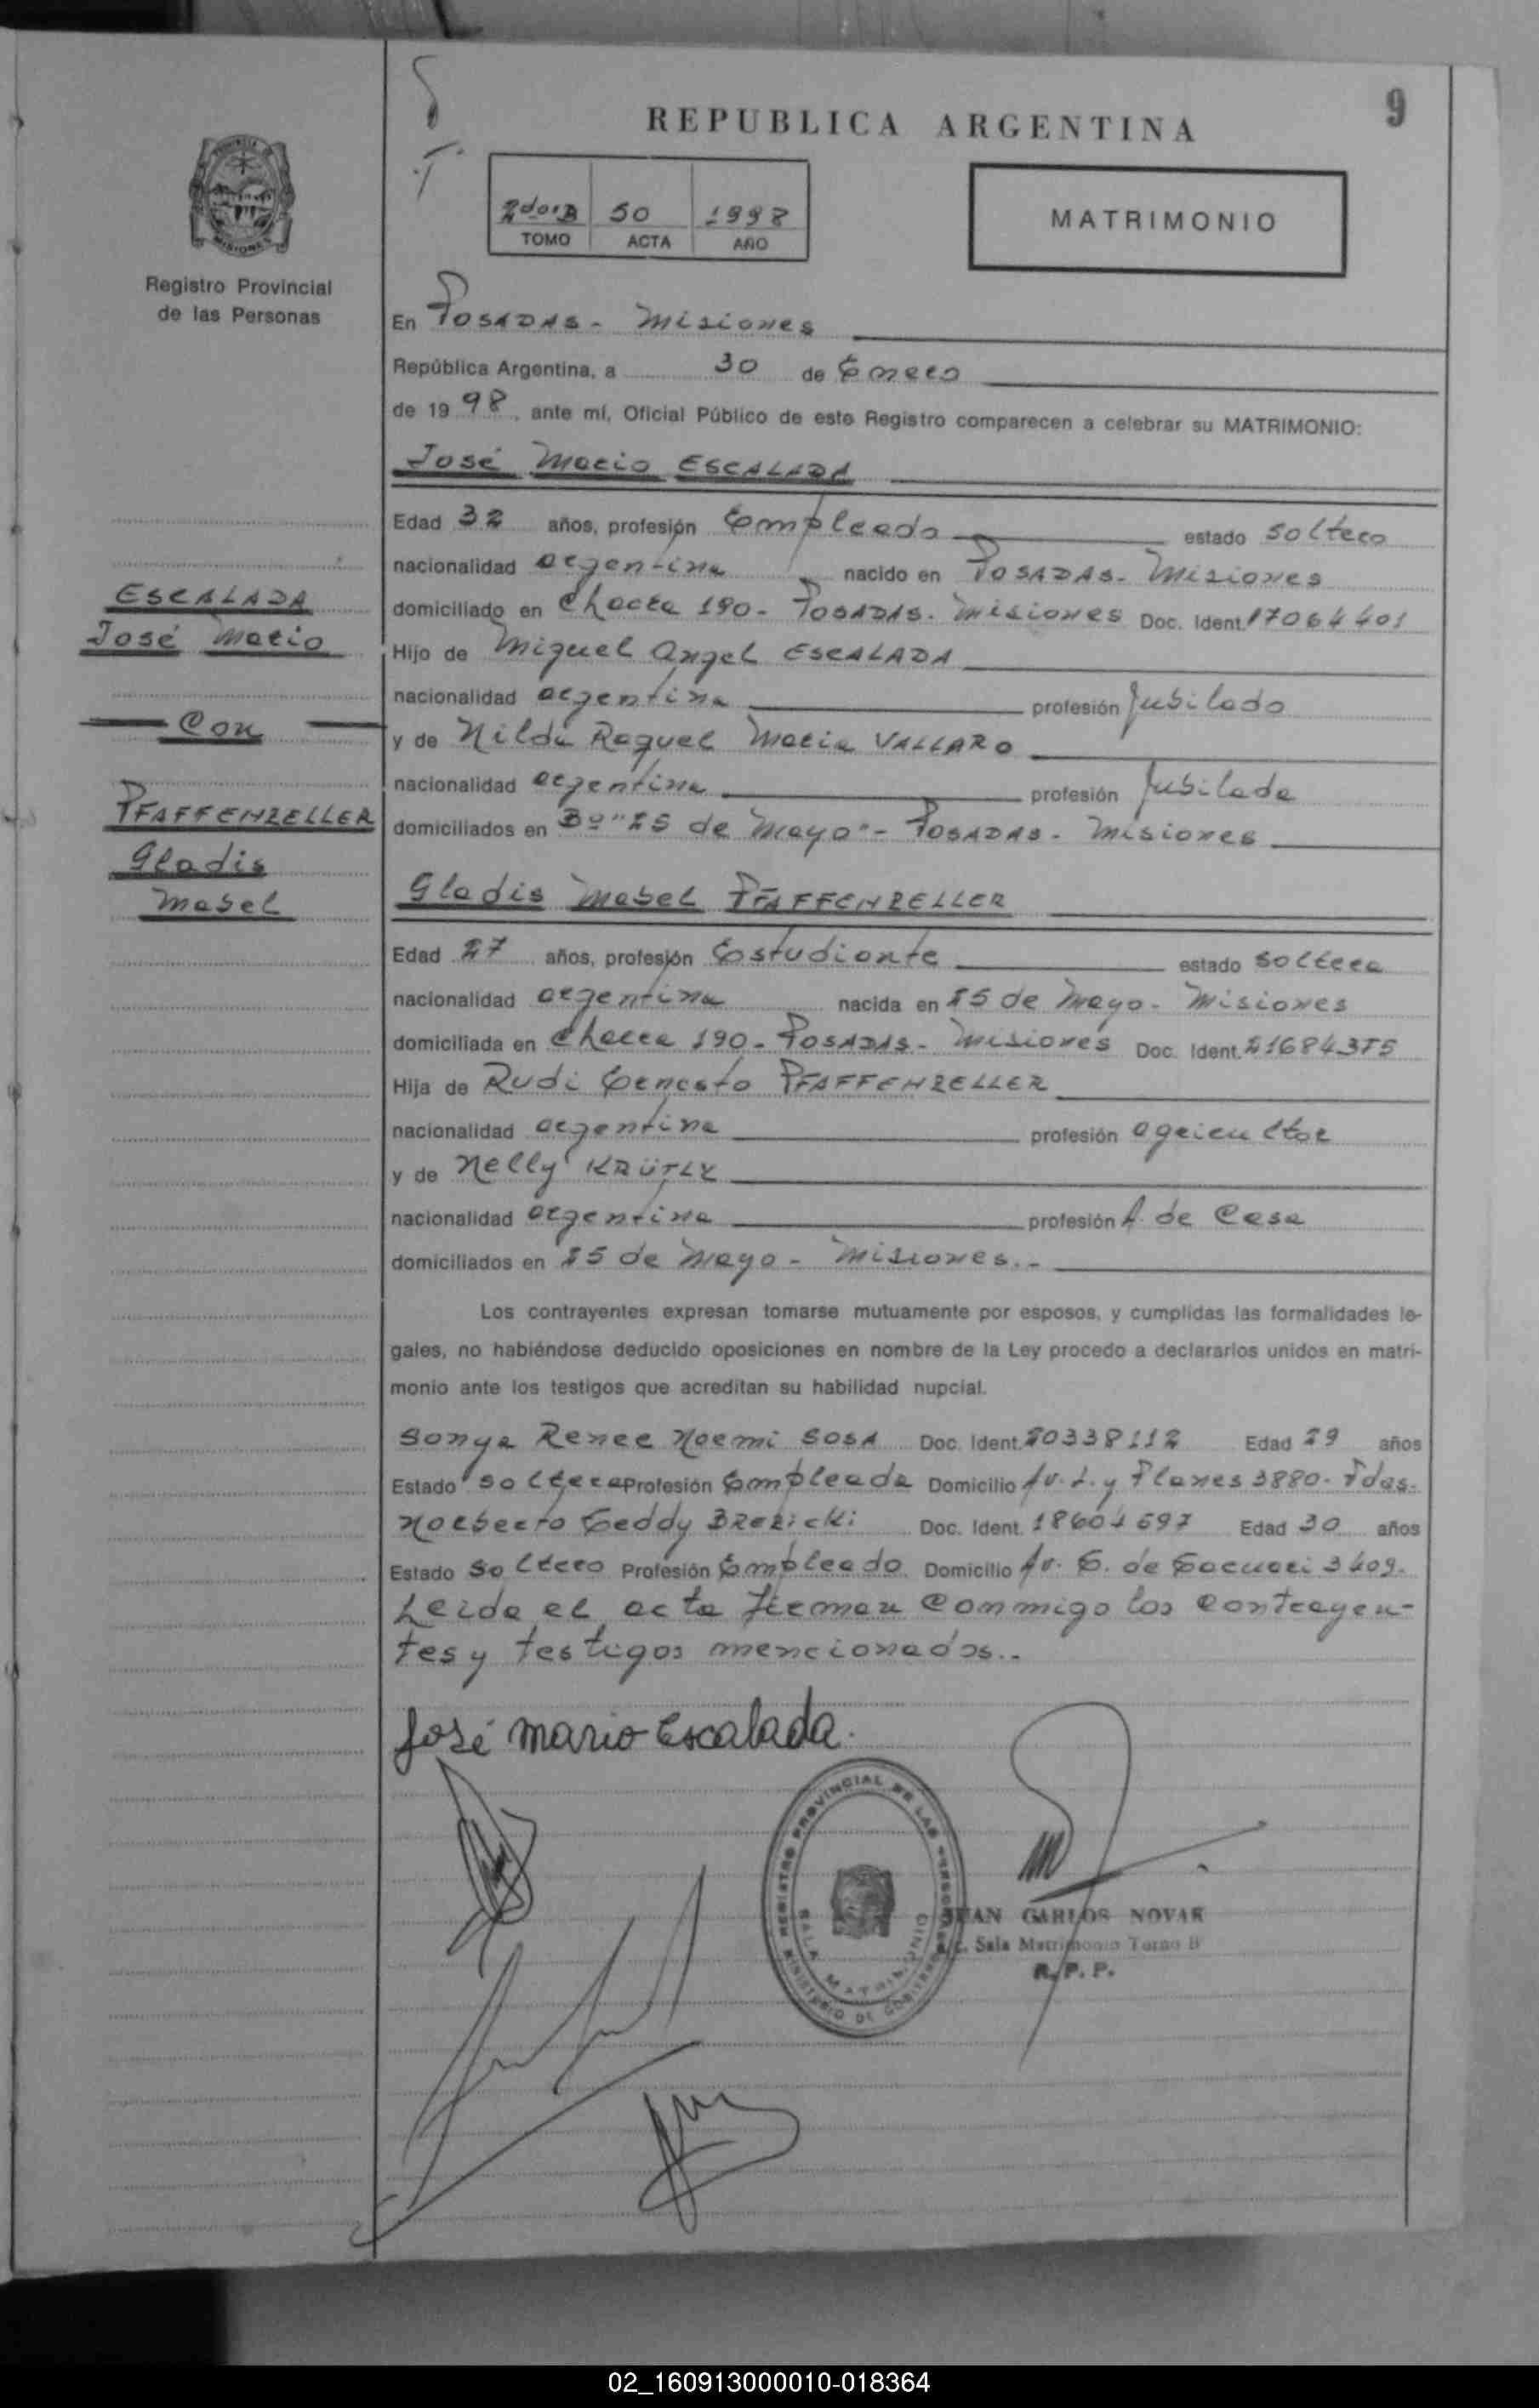 9
REPUBLICA ARGENTINA
MATRIMONIO
2do"B 50 1998
TOMO ACTA AÑO
Registro Provincial
de las Personas
En POSADAS - Misiones
República Argentina, a 30 de Enero
de 19 98, ante mí, Oficial Público de este Registro comparecen a celebrar su MATRIMONIO:
José Mario ESCALADA
Edad 32 años, profesión Empleado estado soltero
nacionalidad argentina nacido en POSADAS - Misiones
ESCALADA
José Mario
domiciliado en Chacra 190 - POSADAS - Misiones Doc. Ident. 17064401
Hijo de Miguel Angel ESCALADA
nacionalidad argentina profesión Jubilado
Con
y de Nilda Raquel Maria VALLARO
nacionalidad argentina profesión Jubilada
PFAFFENZELLER
Gladis
Mabel
domiciliados en Bº "25 de Mayo" - POSADAS - Misiones
Gladis Mabel PFAFFENZELLER
Edad 27 años, profesión Estudiante estado soltera
nacionalidad argentina nacida en 25 de Mayo - Misiones
domiciliada en Chacra 190 - POSADAS - Misiones Doc. Ident. 21684375
Hija de Rudi Ernesto PFAFFENZELLER
nacionalidad argentina profesión agricultor
y de Nelly KRÜTLY
nacionalidad argentina profesión A. de Casa
domiciliados en 25 de Mayo - Misiones.-
Los contrayentes expresan tomarse mutuamente por esposos, y cumplidas las formalidades le-
gales, no habiéndose deducido oposiciones en nombre de la Ley procedo a declararlos unidos en matri-
monio ante los testigos que acreditan su habilidad nupcial.
Sonya Renee Noemi SOSA Doc. Ident. 20338112 Edad 29 años
Estado soltera Profesión Empleada Domicilio Av. L. y Planes 3880 - Pdas.
Norberto Eeddy BREZicki Doc. Ident. 18604697 Edad 30 años
Estado soltero Profesión Empleado Domicilio Av. E. de 3409.
Leida el acta firman conmigo los contrayen-
tes y testigos mencionados..
José Mario Escalada.
REGISTRO PROVINCIAL DE LAS PERSONAS
SALA MATRIMONIO
MINISTERIO DE GOBIERNO
JUAN CARLOS NOVAK
Sala Matrimonio Turno B
R.P.P.
02_160913000010-018364